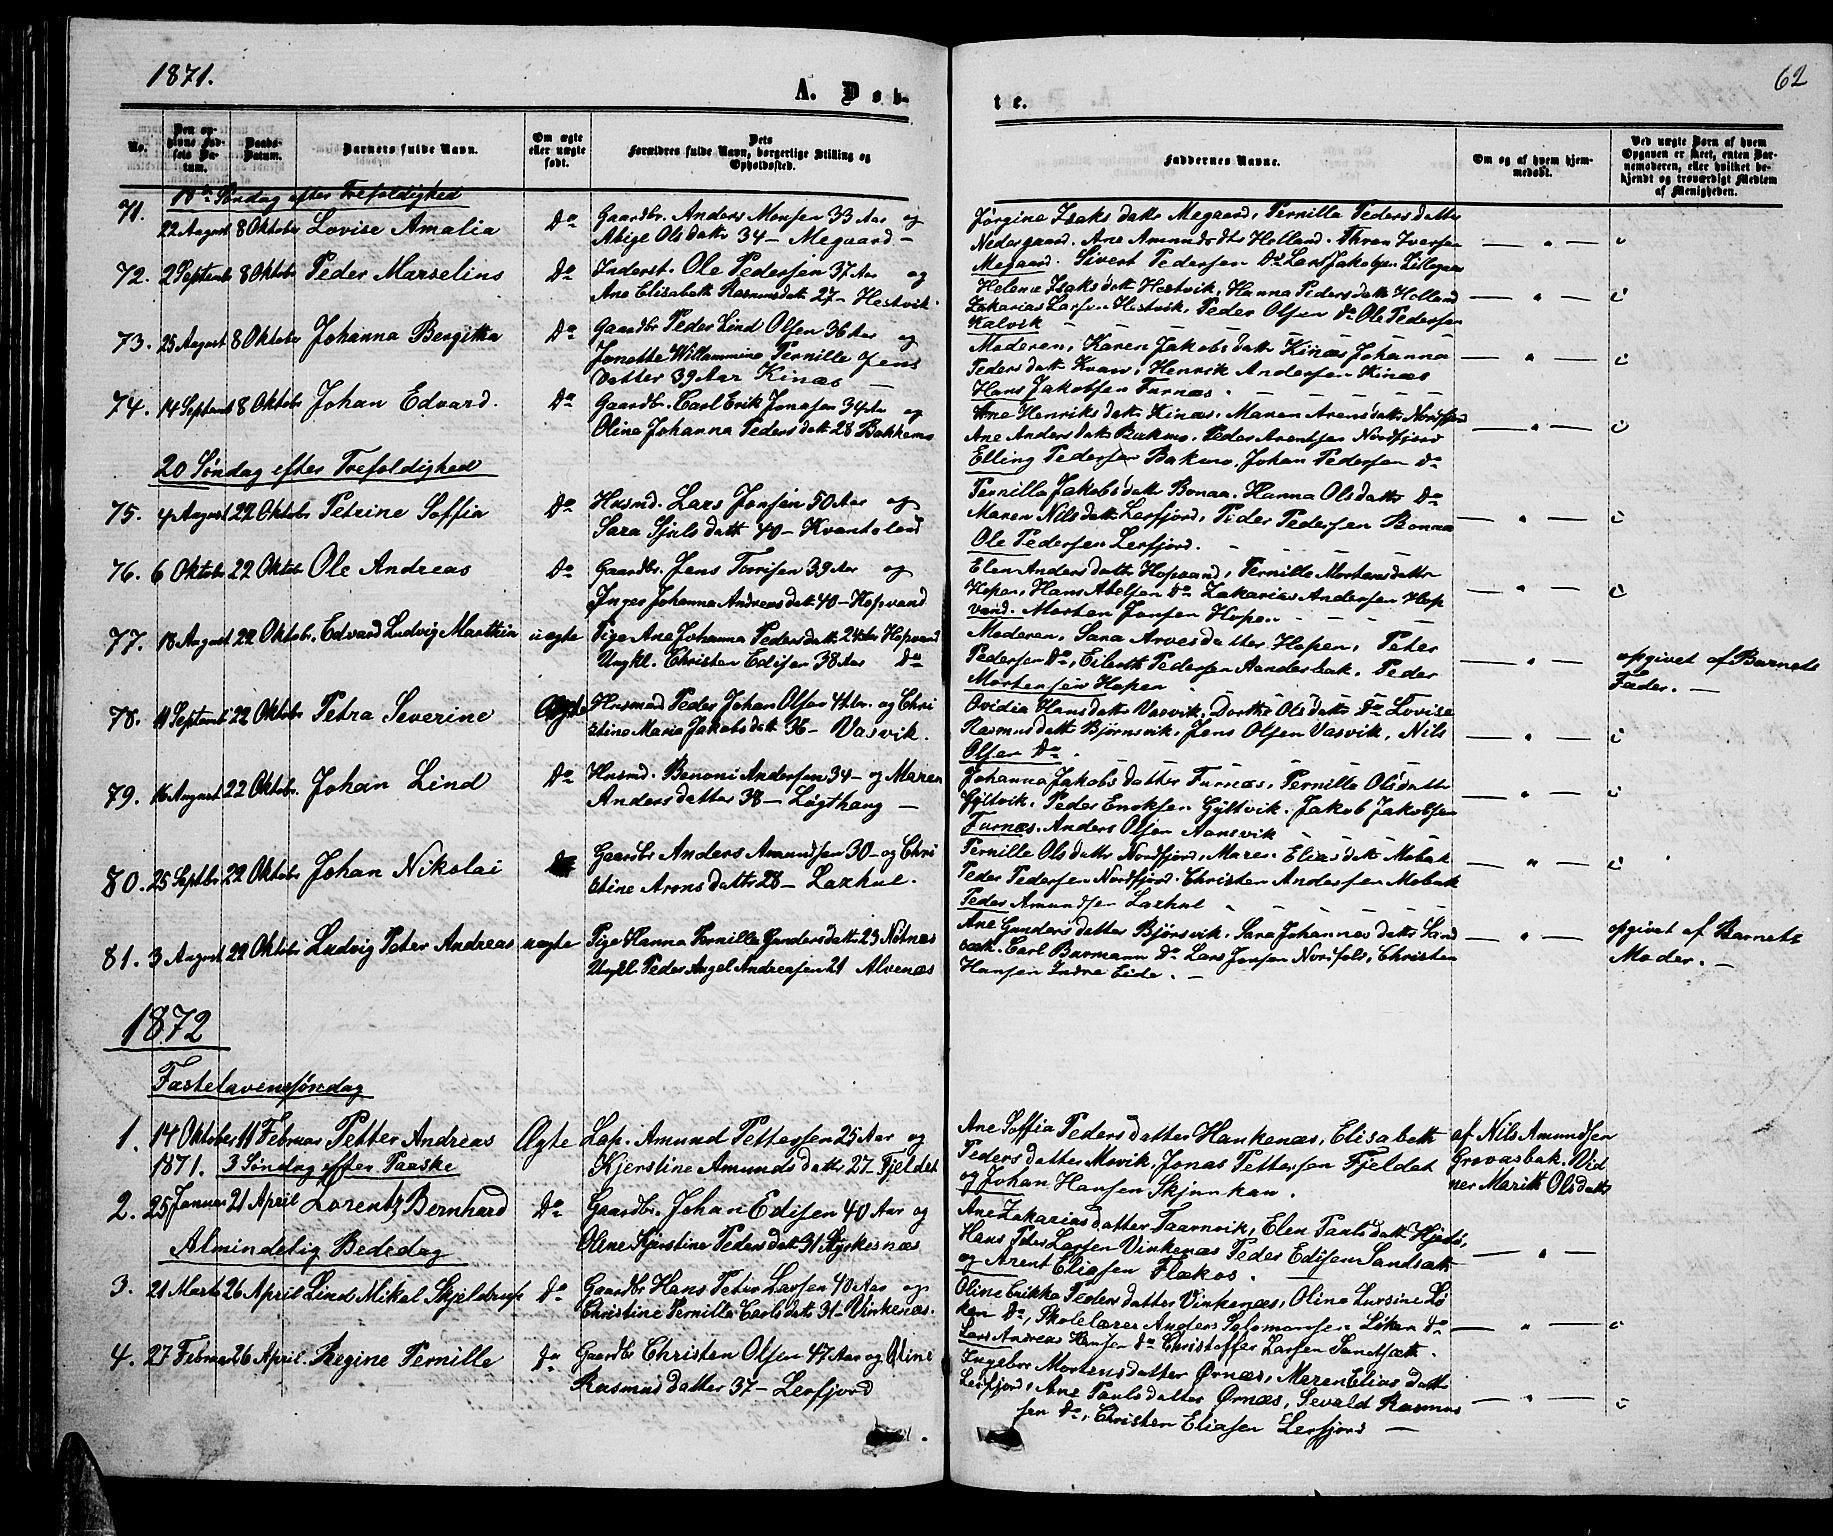 1871.
A. Døb-
te.
62
No.
Den op-
givne Fød-
sels Da-
tum.
Daabs-
Datum.
Barnets fulde Navn.
Om ægte
eller uægte
født.
Dets
Forældres fulde Navn, borgerlige Stilling og
Opholdssted.
Faddernes Navne.
Om og af hvem hjem-
medøbt.
Ved uægte Børn af hvem
Opgaven er skeet, enten Bar-
nemoderen, eller hvilket be-
kjendt og troværdigt Medlem
af Menigheden.
18de Søndag efter Trefoldighed
71. 22 August 8 Oktobr Lovise Amalia Do Gaardbr. Anders Monsen 33 Aar og
Abige Olsdattr 34 – Megaard –
Jørgine Isaksdattr Megaard, Pernilla Pedersdatter
Nedergaard. Ane Amundsdtr Holland. Thron Iversen
Megaard. Sivert Pedersen Do Lars Jakobsen Lillegaar
72. 2 Septembr 8 Oktobr Peder Marselius Do Inderst. Ole Pedersen 37 Aar og
Ane Elisabeth Rasmusdatt 27 – Hestvik.
Helene Isaksdatt Hestvik, Hanna Pedersdattr Holland
Zakarias Larsen Hestvik, Peder Olsen Do Ole Pedersen
Kalvik
73. 25 August 8 Oktobr Johanna Bergitta Do Gaardbr Peder Lind Olsen 36 Aar og
Jonette Willammine Pernille Jens
datter 39 Aar Kinæs –
Moderen, Karen Jakobsdattr Kinæs Johanna
Pedersdatt Kvarv, Henrik Andersen Kinæs
Hans Jakobsen Furnæs.
74. 14 Septembr 8 Oktobr Johan Edvard. Do Gaardbr. Carl Erik Jonasen 34 Aar og
Oline Johanna Pedersdatt 28 Bakkemo
Ane Henriksdatt Kinæs, Maren Arensdattr Nordfjord
Ane Andersdatt Bakmo, Peder Arentsen Nordfjord
Elling Pedersen Bakmo, Johan Pedersen Do
20 Søndag efter Trefoldighed
75. 4 August 22 Oktobr Petrine Soffia Do Husmd. Lars Jonsen 50 Aar og
Sara Sjulsdatt 40 – Kvantolod
Pernilla Jakobsdattr Bonaa. Hanna Olsdattr Do
Maren Nilsdatt Lerfjord, Peder Pedersen Bonaa
Ole Pedersen Lerfjord.
76. 6 Oktobr 22 Oktobr Ole Andreas Do Gaardbr. Jens Torrisen 39 Aar og
Inger Johanna Andreasdatt 40 – Hopvand
Elen Andersdattr Hopvand, Pernille Mortensdattr
Hopen, Hans Abelsen Do Zakarias Andersen Hop
vand. Morten Jonsen Hopen.
77. 18 August 22 Oktobr. Edvard Ludvig Marthin uægte Pige Ane Johanna Pedersdatt 24 Aar Hopvand
Ungkl. Christen Edisen 38 Aar Do
Moderen, Sara Arvesdatter Hopen, Peter
Pedersen Do, Eilerth Pedersen Aanderbak, Peder
Mortensen Hopen
opgivet af Barnets
Fader. –
78. 11 Septembr 22 Oktobr Petra Severine Ægte Husmand Peder Johan Olsen 41 br. og Chri
stine Maria Jakobsdatt 36 – Vasvik.
Ovidia Hansdattr Vasvik, Dorthe Olsdattr Do Lovise
Rasmusdattr Bjørnsvik, Jens Olsen Vasvik, Nils
Olsen Do.
79. 16 August 22 Oktobr. Johan Lind Do Husmd. Benoni Andersen 34 – og Maren
Andersdatter 38 – Løgthaug –
Johanna Jakobsdatter Furnæs, Pernilla Olsdatter
Gyltvik, Peder Enoksen Gyltvik. Jakob Jakobsen
Furnæs. Anders Olsen Aansvik
80. 25 Septbr 22 Oktobr Johan Nikolai Gaardbr Anders Amundsen 30 – og Chri
stine Aronsdattr 28 – Laxhul.
Pernille Olsdattr Nordfjord, Maren Eliasdatt Mobak
Peder Pedersen Nordfjord. Christen Andersen Mobak
Peder Amundsen Laxhul
81. 3 August 22 Oktobr Ludvig Peter Andreas uægte Pige Hanna Pernilla Gundersdattr 23 Nøtnæs
Ungkl Peder Angel Andreasen 21 Alvenæs
Ane Gundersdatter Bjørsvik, Sara Johannesdattr Sand
væt. Carl Barmann Do Lars Jensen Nordfold, Christen
Hansen Indre Eide. –
opgivet af Barnets
Moder. –
1872
Fastelavenssøndag
1. 14 Oktober 11 Februar Petter Andreas Ægte Lap. Amund Pettersen 25 Aar og
1871. Kjerstine Amundsdatter 27. Fjeldet
Ane Soffia Pedersdatter Hankenæs, Elisabeth
Pedersdatter Movik, Jonas Pettersen Fjeldet
og Johan Hansen Skjunkan.
af Nils Amundsen
Grovasbak. Vid
ner Maritt Olsdattr
3 Søndag efter Paaske
2. 25 Januar 21 April Lorents Bernhard Do Gaardbr. Johan Edisen 40 Aar og
Oline Kjerstine Pedersdatt 31 Styrkesnæs
Ane Zakariasdatter Taarnvik, Elen Paulsdatt Hjertø,
Hans Peter Larsen Vinkenæs Peder Edisen Sandsæt
og Arent Eliasen Flækos.
Almindelig Bededag
3. 21 Marts 26 April Lind Mikal Skjeldrup Do Gaardbr Hans Peter Larsen 40 Aar og
Christine Pernilla Carlsdatt 31 – Vinkenæs.
Oline Erikka Pedersdatter Vinkenæs, Olina Lursine Lø
ken Do, Skolelærer Anders Salomonsen Løken Do
Lars Andreas Hansen Do Christoffer Larsen Sandsæt.
4. 27 Februar 26 April Regine Pernille Do Gaardbr Christen Olsen 47 Aar og Oline
Rasmusdatter 37 – Lerfjord
Ingebor Mortensdatter Ørnæs, Meren Eliasdattr
Lerfjord, Ane Paulsdatter Ørnæs, Sevald Rasmus
sen Do, Christen Eliasen Lerfjord –